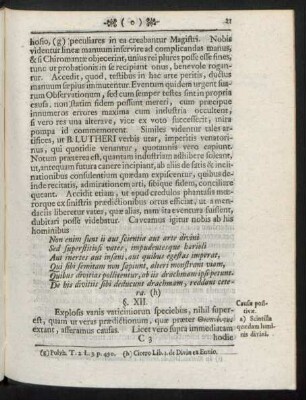 ( 0 ) 21
hosio, (g) peculiares in ea creabantur Magistri. Nobis
videntur lineæ manuum inservire ad complicandas manus,
& si Chiromantæ objecerint, unius rei plures posse esse fines,
tunc ut probationis in se recipiant onus, benevole rogan-
tur. Accedit, quod, testibus in hac arte peritis, ductus
manuum sæpius immutentur. Eventum quidem urgent sua-
rum Observationum, sed cum semper testes sint in propria
causa, non statim fidem possunt mereri, cum præcipue
innumeros errores maxima cum industria occultent,
si vero res una alterave, vice ex voto successerit, mira
pompa id commemorent. Similes videntur tales ar-
tifices, ut B. LUTHERI verbis utar, imperitis venatori-
nus, qui quotidie venantur, quotannis vero capiunt.
Notum præterea est, quantam industriam adhibere soleant,
ut, antequam futura canere incipiant, ab aliis de fatis & incli-
nationibus consulentium quædam expiscentur, quibus de-
inde recitatis, admirationem arti, sibique fidem, conciliare
queant. Accidit etiam, ut apud credulos phantasiæ me-
rorque ex sinistris prædictionibus ortus efficiat, ut a men-
daciis liberetur vates, quæ alias, nam ita evenura fuissent,
dubitari posse videbatur. Caveamus igitur nobis ab his
hominibus
Non enim sunt ii aut scientia aut arte divini
Sed superstitiosi vates, impudentesque harioli
Aut inertes aut insani, aut quibus egestas imperat,
Qui sibi semitam non sapiunt, alteri monstrant viam,
Quibus divitias pollicentur, ab iis drachmam ipsi petunt.
De his divitiis sibi deducant drachmam, reddant cete-
ra. (h)
§. XII.
Explosis variis vaticiniorum speciebus, nihil super-
est, quam ut veras prædictionum, quæ præter
extant, asseramus causas. Licet vero supra immediatam
C 3 hodie
Causæ posi-
tivæ.
a) Scientia
quædam homi-
nis divini.
(g) Pulch. T. 2. L. 3. p. 430. (h) Cicero Lib. 1. de Divin ex Ennio.